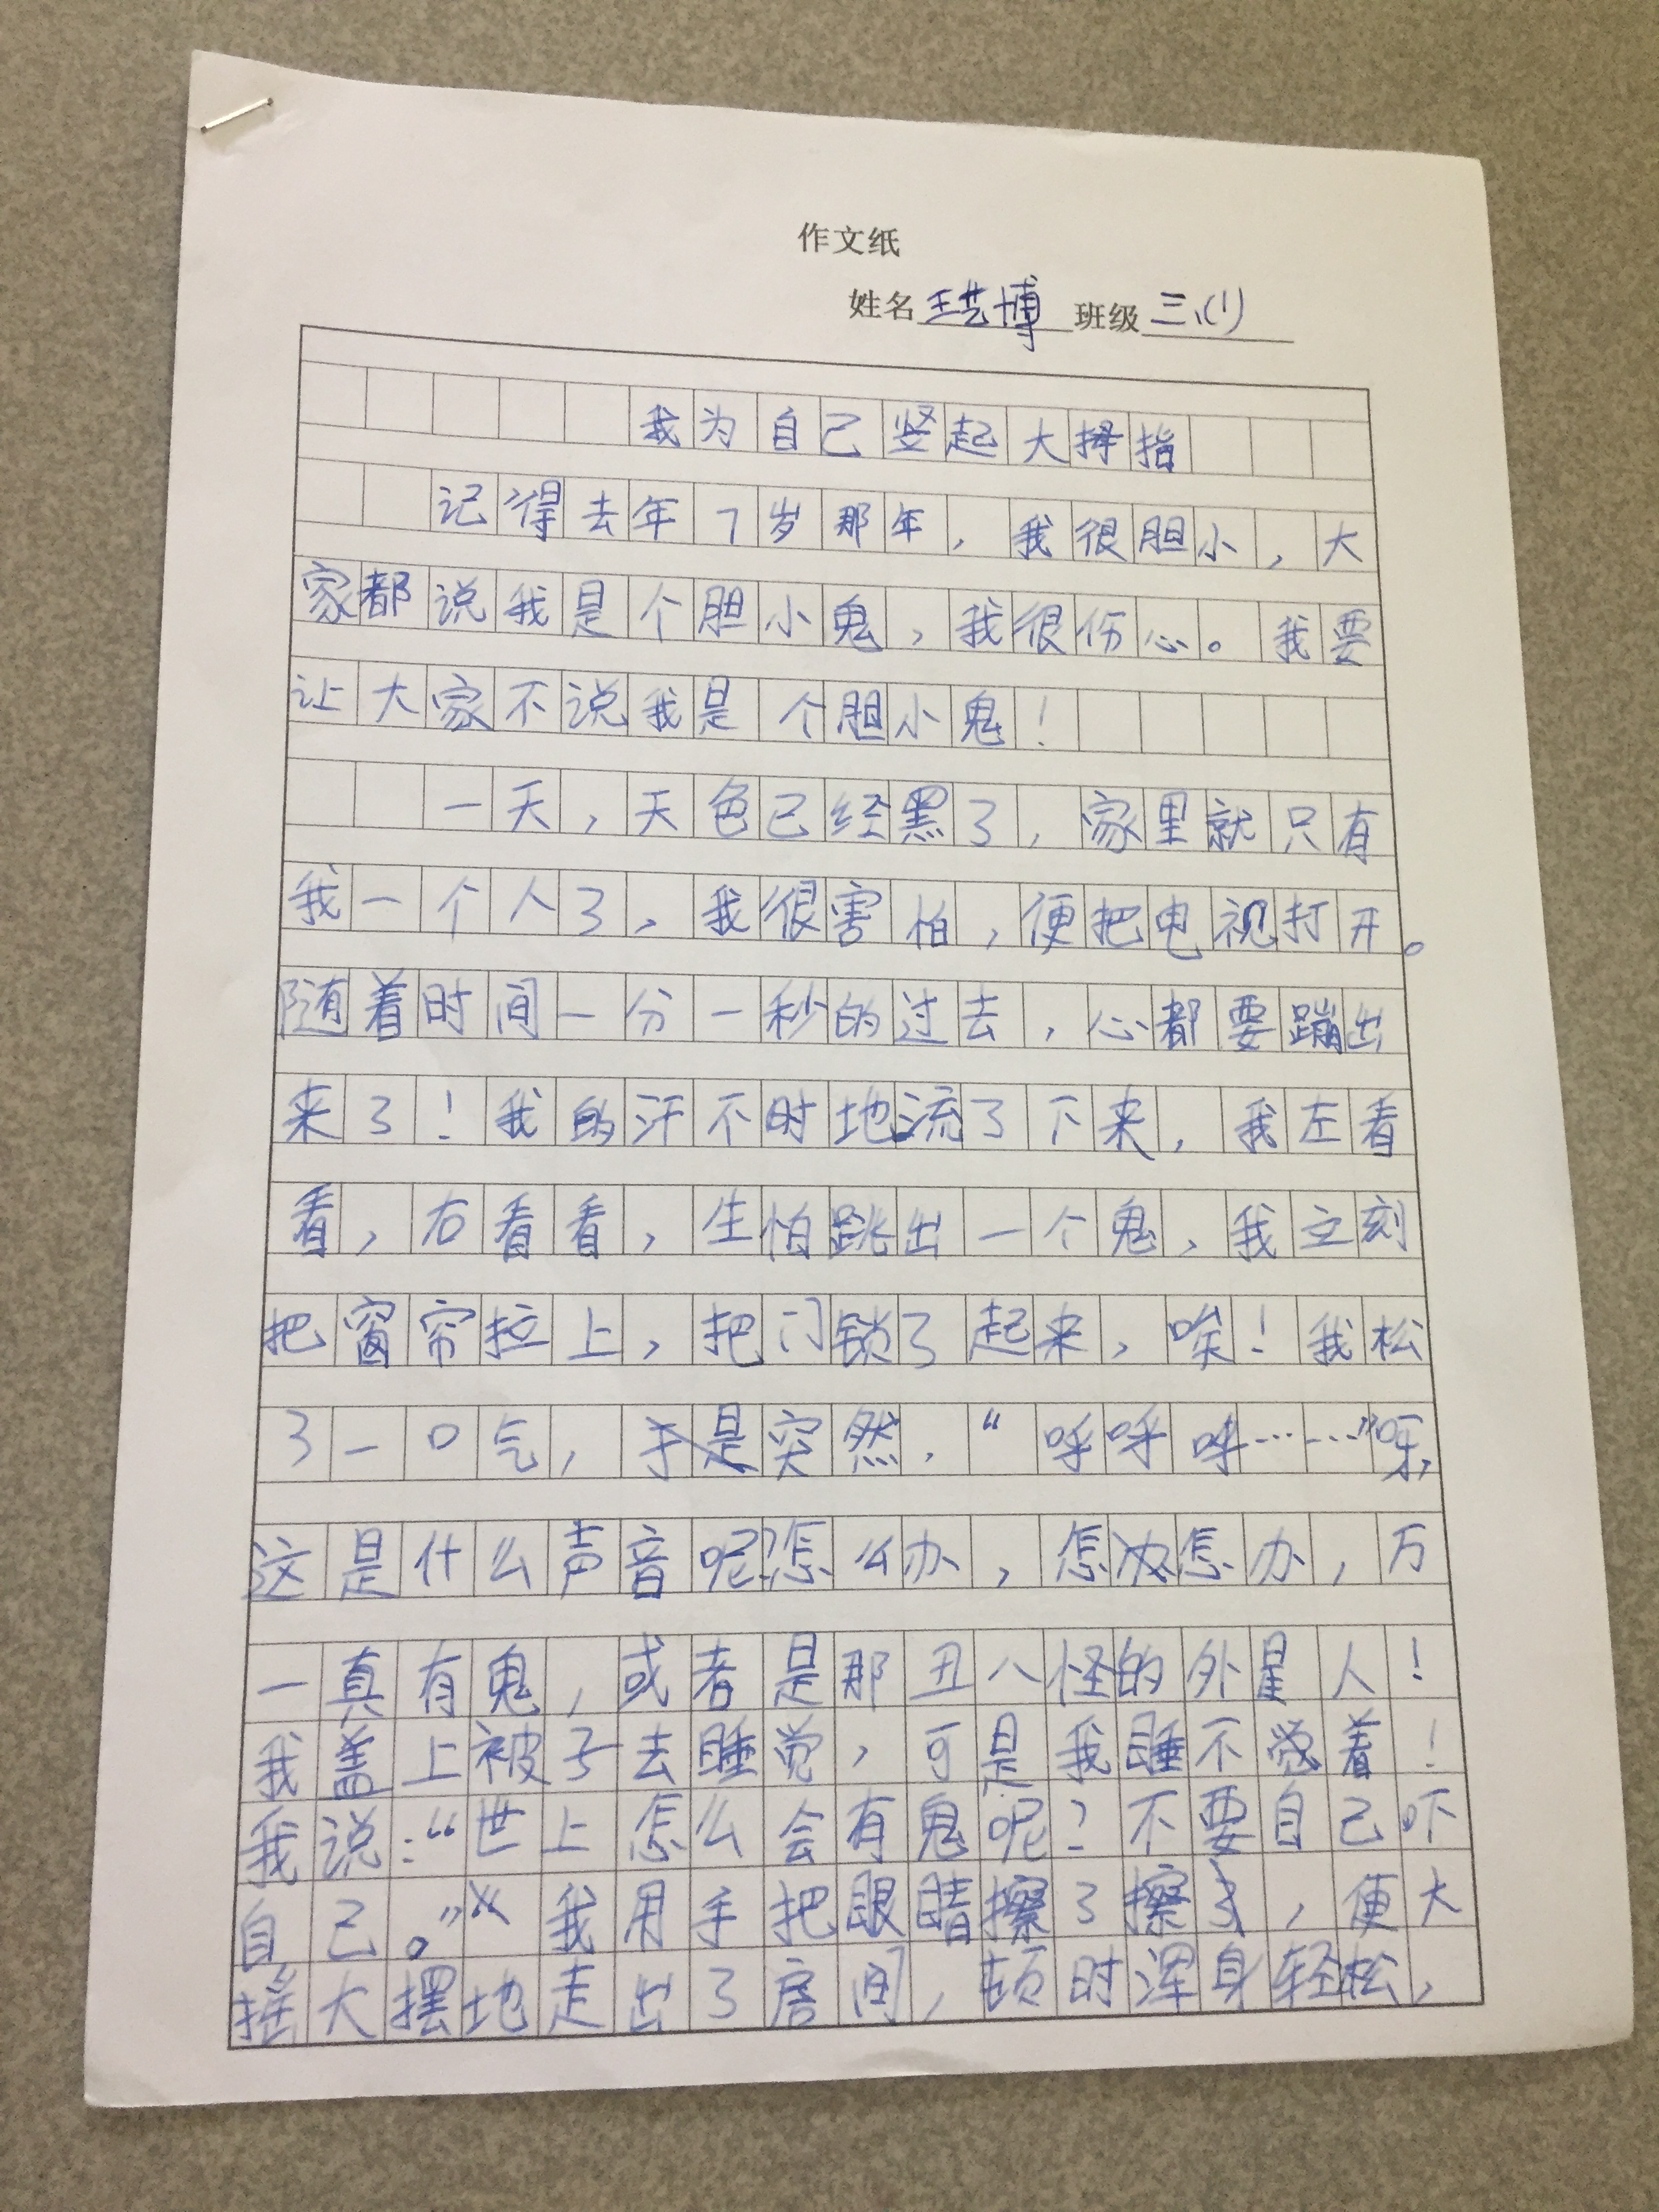 作文纸
姓名 王艺博 班级 三、(1)
我为自己竖起大拇指
记得去年7岁那年，我很胆小，大
家都说我是个胆小鬼，我很伤心。我要
让大家不说我是个胆小鬼！
一天，天色已经黑了，家里就只有
我一个人了，我很害怕，便把电视打开。
随着时间一分一秒的过去，心都要蹦出
来了！我的汗不时地流了下来，我左看
看，右看看，生怕跳出一个鬼，我立刻
把窗帘拉上，把门锁了起来，唉！我松
了一口气，突然，“呼呼呼……”呀，
这是什么声音呢？怎么办，怎么办，万
一真有鬼，或者是那丑八怪的外星人！
我盖上被子去睡觉，可是我睡不着！
我说：“世上怎么会有鬼呢？不要自己吓
自己。”我用手把眼睛擦了擦，便大
摇大摆地走出了房间，顿时浑身轻松，